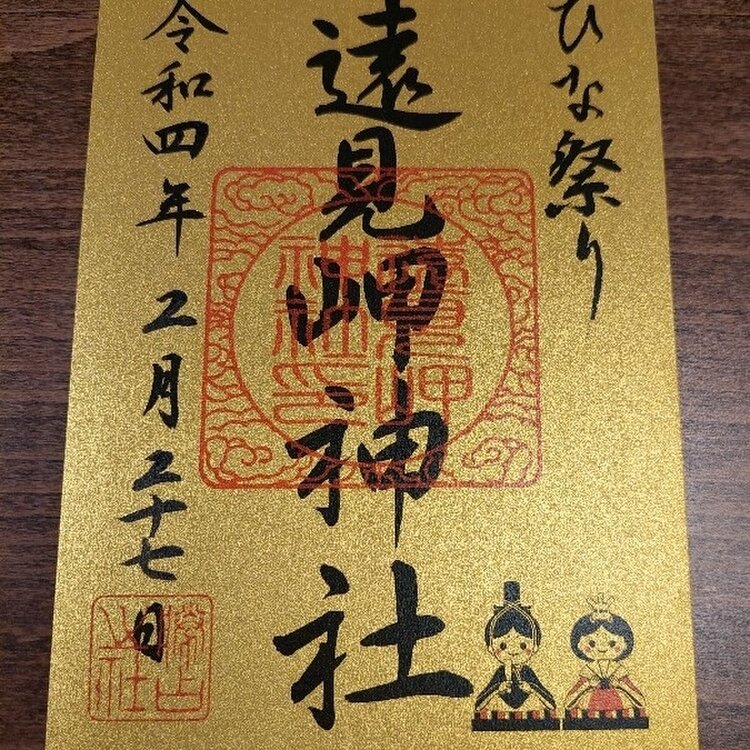 ひな祭り
遠見岬神社
令和四年二月二十七日
遠見岬
神社印